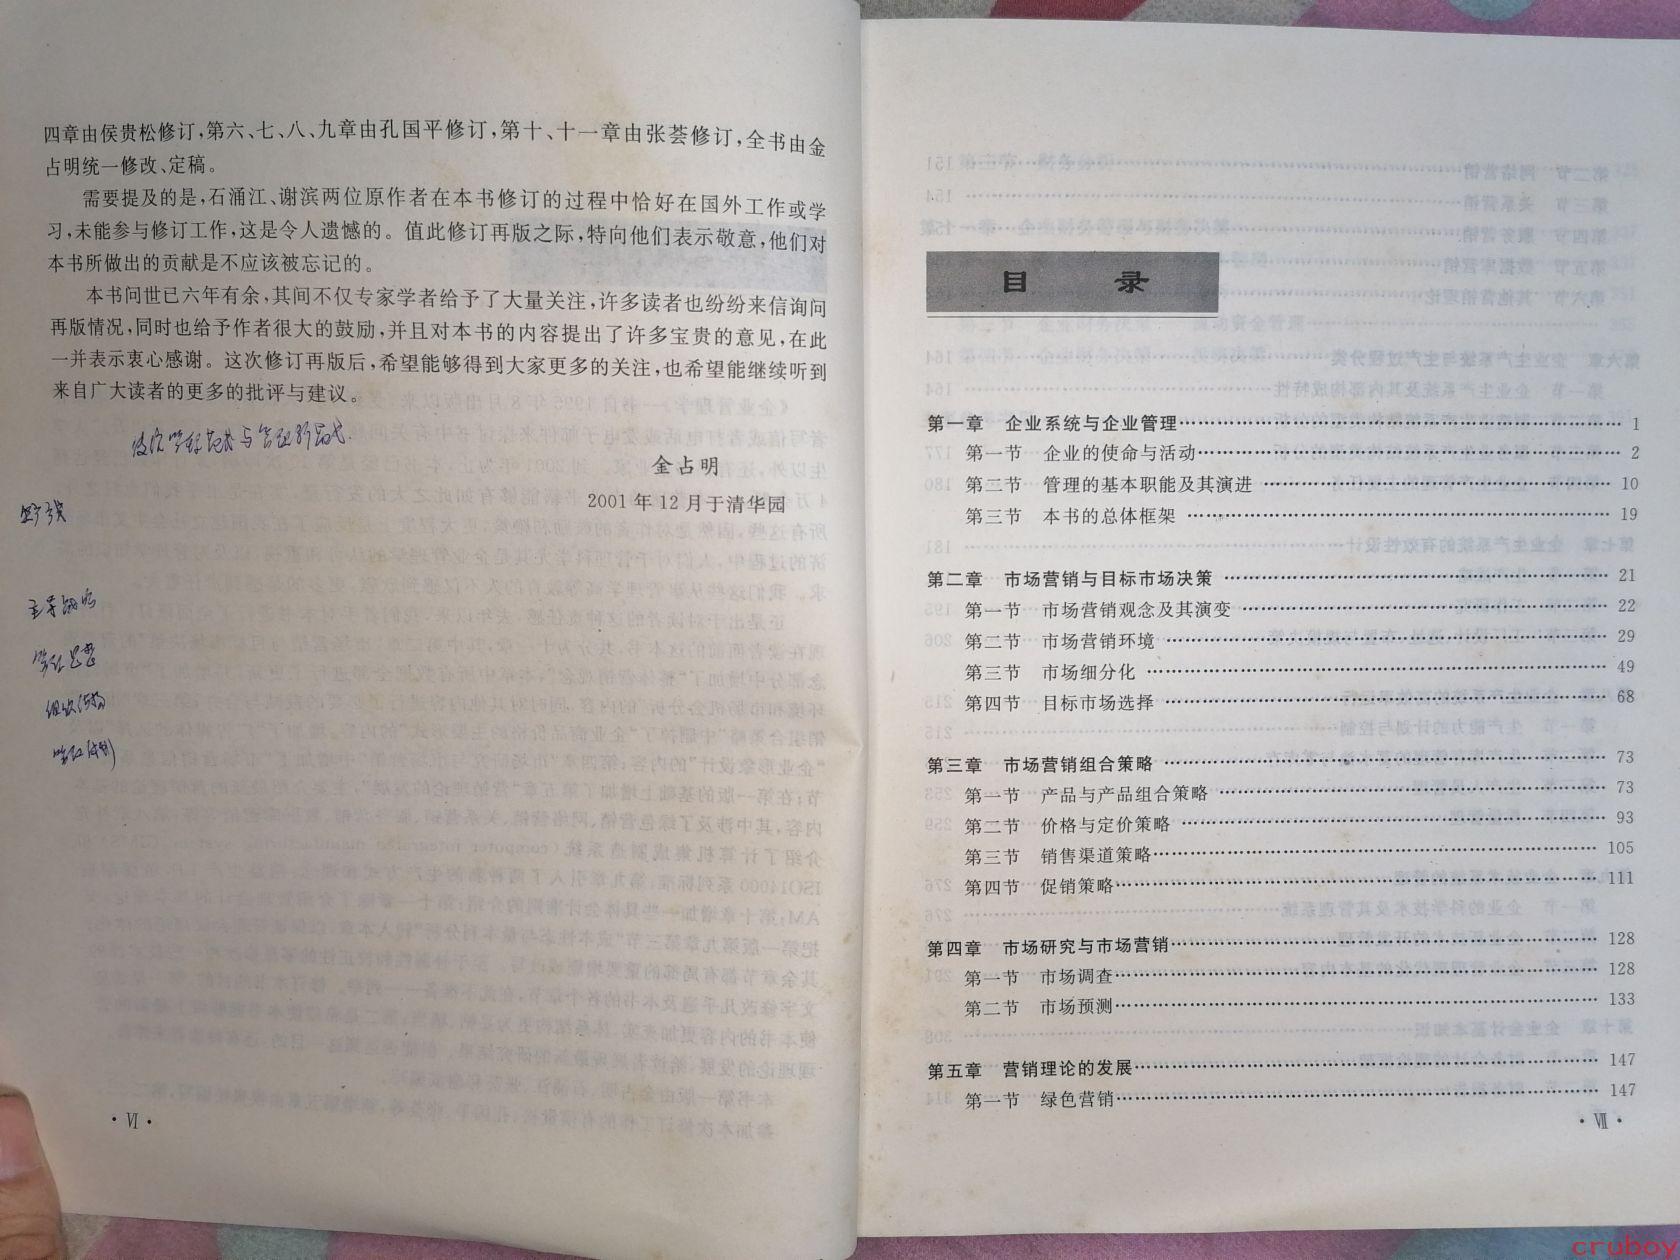 四章由侯贵松修订,第六、七、八、九章由孔国平修订,第十、十一章由张荟修订,全书由金
占明统一修改、定稿。
需要提及的是,石涌江、谢滨两位原作者在本书修订的过程中恰好在国外工作或学
习,未能参与修订工作,这是令人遗憾的。值此修订再版之际,特向他们表示敬意,他们对
本书所做出的贡献是不应该被忘记的。
本书问世已六年有余,其间不仅专家学者给予了大量关注,许多读者也纷纷来信询问
再版情况,同时也给予作者很大的鼓励,并且对本书的内容提出了许多宝贵的意见,在此
一并表示衷心感谢。这次修订再版后,希望能够得到大家更多的关注,也希望能继续听到
来自广大读者的更多的批评与建议。
金占明
2001年12月于清华园
·Ⅵ·
目 录
第一章 企业系统与企业管理…… 1
第一节 企业的使命与活动…… 2
第二节 管理的基本职能及其演进…… 10
第三节 本书的总体框架…… 19
第二章 市场营销与目标市场决策…… 21
第一节 市场营销观念及其演变…… 22
第二节 市场营销环境…… 29
第三节 市场细分化…… 49
第四节 目标市场选择…… 68
第三章 市场营销组合策略…… 73
第一节 产品与产品组合策略…… 73
第二节 价格与定价策略…… 93
第三节 销售渠道策略…… 105
第四节 促销策略…… 111
第四章 市场研究与市场营销…… 128
第一节 市场调查…… 128
第二节 市场预测…… 133
第五章 营销理论的发展…… 147
第一节 绿色营销…… 147
·Ⅶ·
cruboy